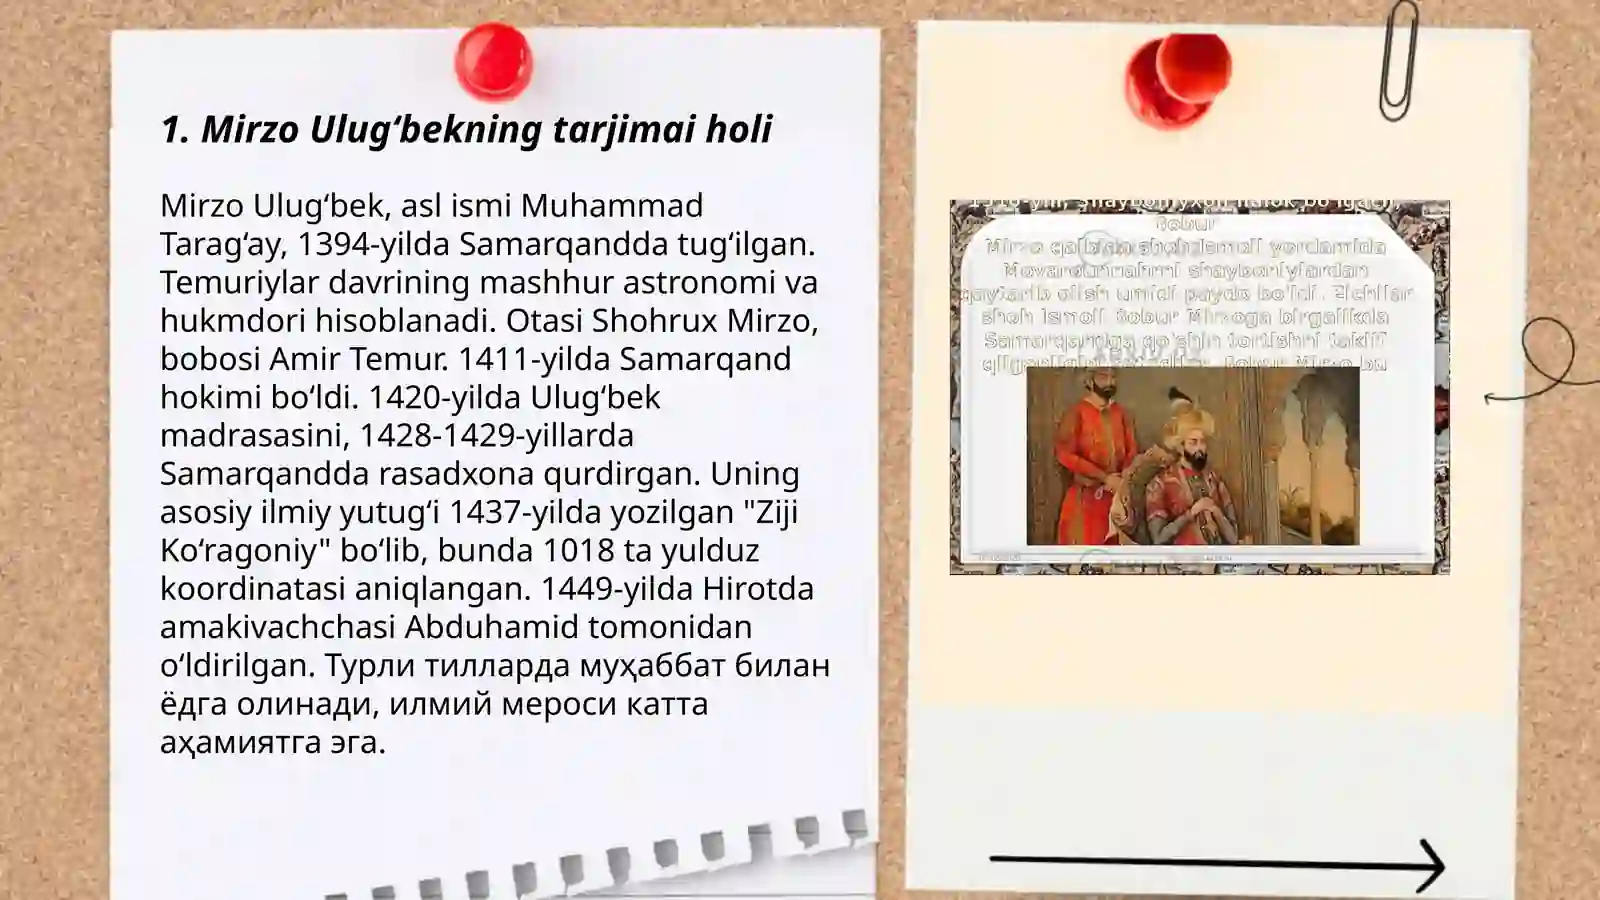 1. Mirzo Ulug‘bekning tarjimai holi
Mirzo Ulug‘bek, asl ismi Muhammad
Tarag‘ay, 1394-yilda Samarqandda tug‘ilgan.
Temuriylar davrining mashhur astronomi va
hukmdori hisoblanadi. Otasi Shohrux Mirzo,
bobosi Amir Temur. 1411-yilda Samarqand
hokimi bo‘ldi. 1420-yilda Ulug‘bek
madrasasini, 1428-1429-yillarda
Samarqandda rasadxona qurdirgan. Uning
asosiy ilmiy yutug‘i 1437-yilda yozilgan "Ziji
Ko‘ragoniy" bo‘lib, bunda 1018 ta yulduz
koordinatasi aniqlangan. 1449-yilda Hirotda
amakivachchasi Abduhamid tomonidan
o‘ldirilgan. Турли тилларда муҳаббат билан
ёдга олинади, илмий мероси катта
аҳамиятга эга.
Bobur
Mirzo qalbida shohIsmoil yordamida
Movarounnahrni shayboniylardan
qaytarib olish umidi paydo bo'ldi. Elchilar
shoh Ismoil Bobur Mirzoga birgalikda
Samarqandga qo'shin tortishni taklif
Bobur Mirzo bu